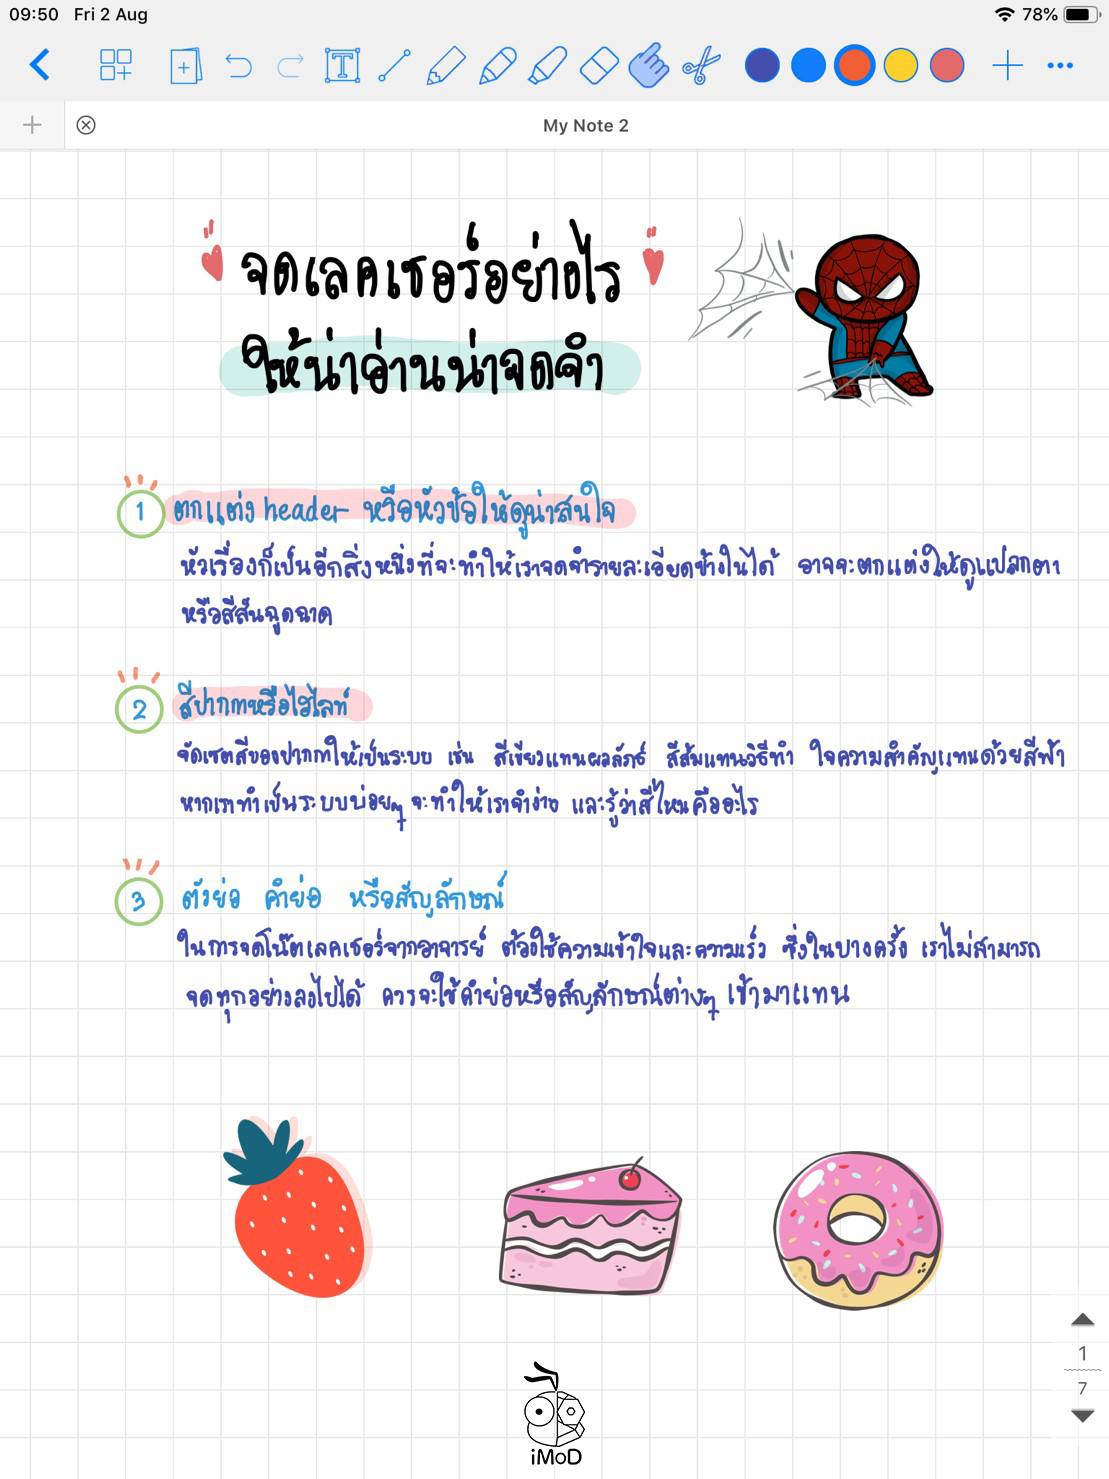 09:50 Fri 2 Aug
78%
My Note 2
จดเลคเชอร์อย่างไร
ให้น่าอ่านน่าจดจำ
1 ตกแต่ง header หรือหัวข้อให้ดูน่าสนใจ
หัวเรื่องก็เป็นอีกสิ่งหนึ่งที่จะทำให้เราจดจำรายละเอียดข้างในได้ อาจจะตกแต่งให้ดูแปลกตา
หรือสีสันฉูดฉาด
2 สีปากกาหรือไฮไลท์
จัดเซตสีของปากกาให้เป็นระบบ เช่น สีเขียวแทนผลลัพธ์ สีส้มแทนวิธีทำ ใจความสำคัญแทนด้วยสีฟ้า
หากเราทำเป็นระบบบ่อยๆ จะทำให้เราจำง่าย และรู้ว่าสีไหนคืออะไร
3 ตัวย่อ คำย่อ หรือสัญลักษณ์
ในการจดโน๊ตเลคเชอร์จากอาจารย์ ต้องใช้ความเข้าใจและความเร็ว ซึ่งในบางครั้ง เราไม่สามารถ
จดทุกอย่างลงไปได้ ควรจะใช้คำย่อหรือสัญลักษณ์ต่างๆ เข้ามาแทน
1
7
iMoD